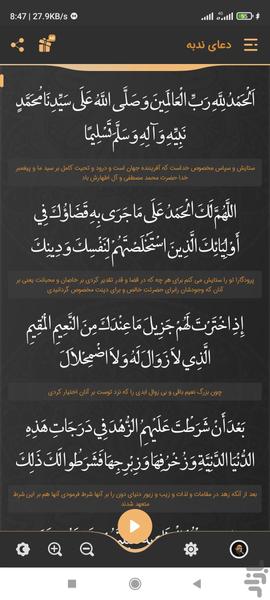 8:47 | 27.9KB/s
دعای ندبه
اَلْحَمْدُ لِلّهِ رَبِّ الْعالَمینَ وَ صَلَّى اللهُ عَلى سَیِّدِنا مُحَمَّدٍ
نَبِیِّهِ وَ آلِهِ وَ سَلَّمَ تَسْلیماً
ستایش و سپاس مخصوص خداست که آفریننده جهان است و درود و تحیت کامل بر سید ما و پیغمبر
خدا حضرت محمد مصطفی و آل اطهارش باد
اللهُمَّ لَكَ الْحَمْدُ عَلى ما جَرى بِهِ قَضاؤُكَ فِي
أَوْلِيائِكَ الَّذِينَ اسْتَخْلَصْتَهُمْ لِنَفْسِكَ وَ دِينِكَ
پروردگارا تو را ستایش می کنم برای هر چه که در قضا و قدر تقدیر کردی بر خاصان و محبانت یعنی بر
آنان که وجودشان رابرای حضرتت خالص و برای دینت مخصوص گردانیدی
إِذِ اخْتَرْتَ لَهُمْ جَزِيلَ ما عِنْدَكَ مِنَ النَّعِيمِ الْمُقِيمِ
الَّذِي لا زَوالَ لَهُ وَ لا اضْمِحْلالَ
چون بزرگ نعیم باقی و بی زوال ابدی را که نزد توست بر آنان اختیار کردی
بَعْدَ أَنْ شَرَطْتَ عَلَيْهِمُ الزُّهْدَ فِي دَرَجاتِ هذِهِ
الدُّنْيَا الدَّنِيَّةِ وَ زُخْرُفِها وَ زِبْرِجِها فَشَرَطُوا لَكَ ذلِكَ
بعد از آنکه زهد در مقامات و لذات و زیب و زیور دنیای دون را بر آنها شرط فرمودی آنها هم بر این شرط
متعهد شدند
بازار